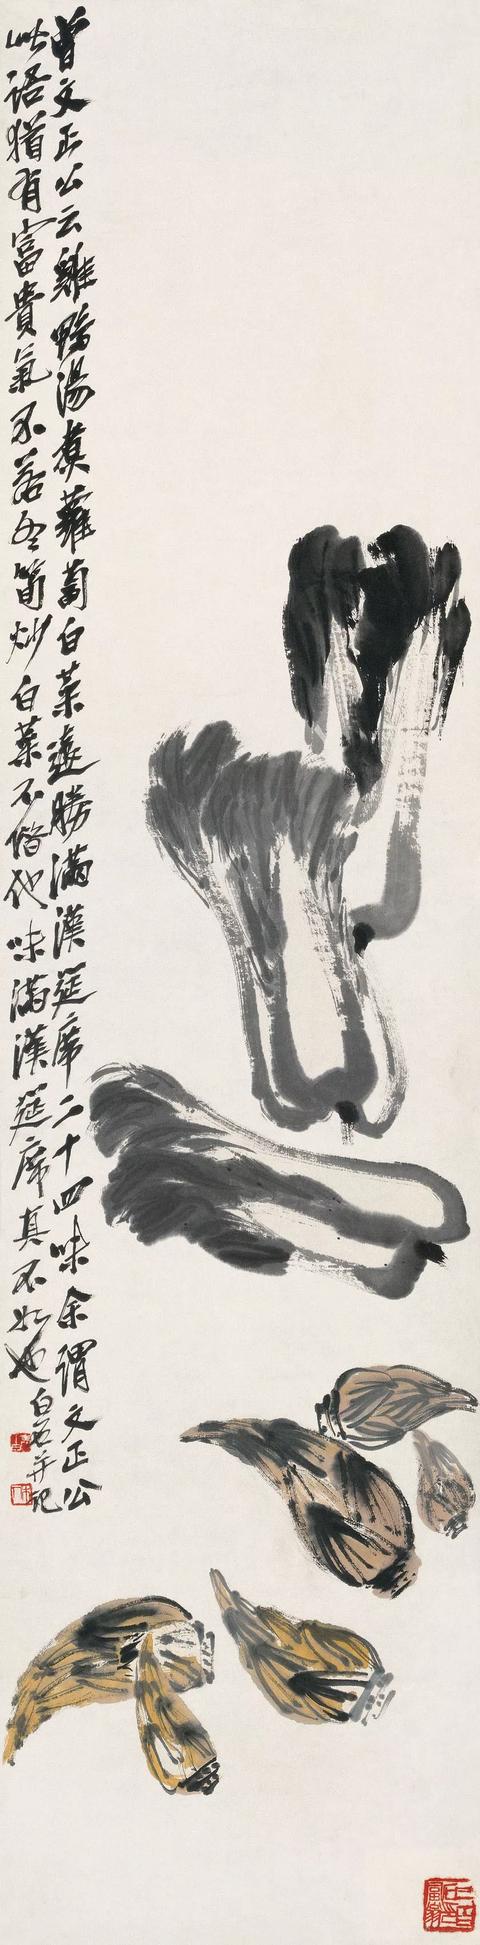 曾文正公云雞鴨湯煮蘿蔔白菜遠勝滿漢筵席二十四味余謂文正公
此語猶有富貴氣不若冬筍炒白菜不借他味滿漢筵席真不如也
白石并記